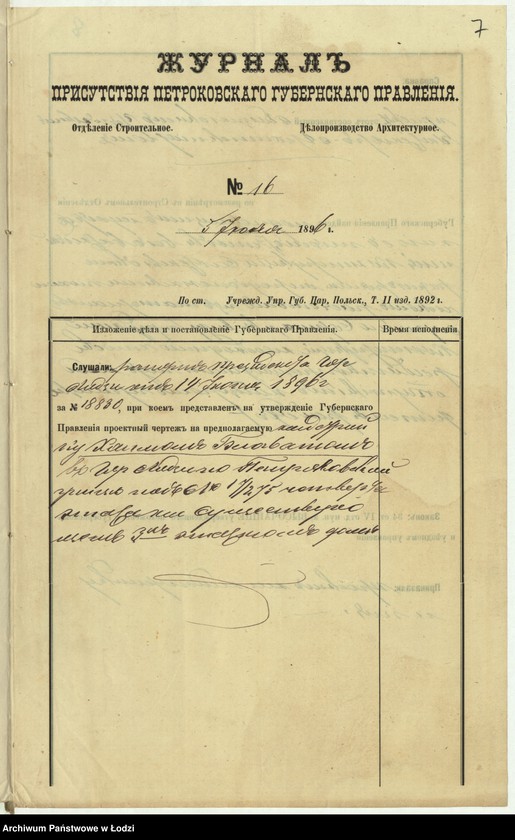 7
ЖУРНАЛЪ
ПРИСУТСТВІЯ ПЕТРОКОВСКАГО ГУБЕРНСКАГО ПРАВЛЕНІЯ.
Отдѣленіе Строительное. Дѣлопроизводство Архитектурное.
№ 16
1896 г.
По ст. Учрежд. Упр. Губ. Цар. Польск., Т. II изд. 1892 г.
Изложеніе дѣла и постановленіе Губернскаго Правленія. Время исполненія
Слушали: рапортъ Президента гор.
Лодзи отъ 14 1896 г
за № 18830, при коемъ представленъ на утвержденіе Губернскаго
Правленія проектный чертежъ на предполагаемую
Хаимомъ
въ гор. Лодзи по Петроковской
улицѣ подъ № 11/275 четвертаго
этажа на существую
щемъ 3хъ этажномъ домѣ
Archiwum Państwowe w Łodzi